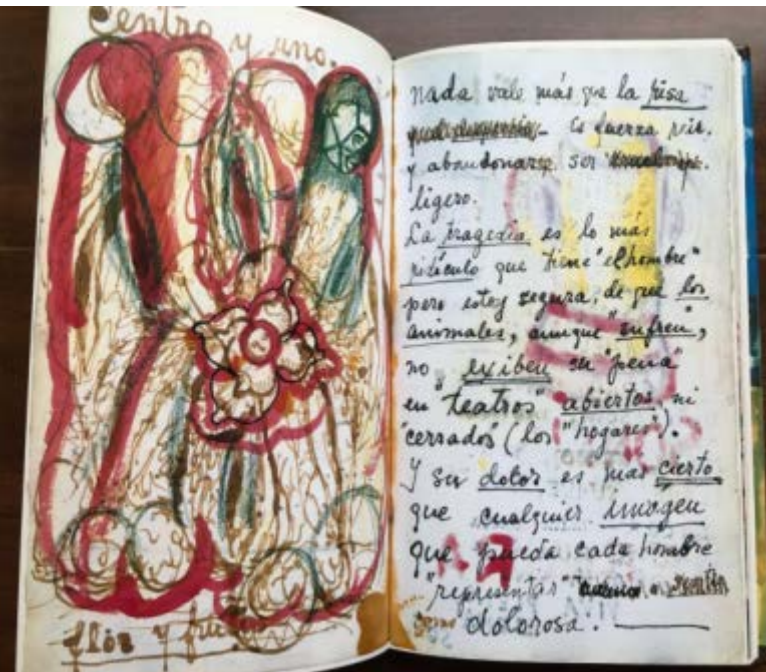 Centro y uno.
flor y fruto
nada vale más que la risa
Es fuerza reir.
y abandonarse ser
ligero.
La tragedia es lo más
ridículo que tiene "el hombre"
pero estoy segura, de que los
animales, aunque "sufren",
no exiben su "pena"
en "teatros" abiertos ni
"cerrados" (los "hogares").
Y su dolor es mas cierto
que cualquier imagen
que pueda cada hombre
"representar"
como dolorosa. ———